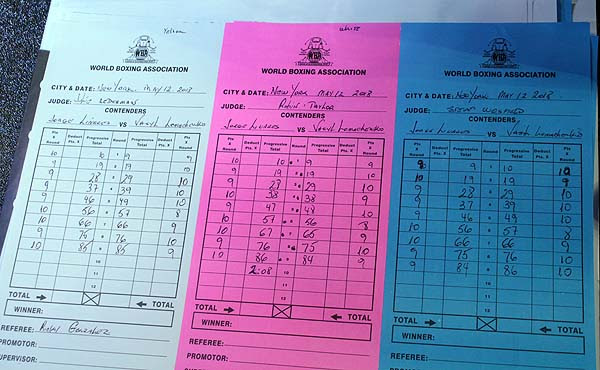 WORLD BOXING ASSOCIATION
CITY & DATE: New York May 12 2018
JUDGE:
CONTENDERS
Jorge Linares VS Vasyl Lomachenko
Pts Round Deduct Pts. X Progressive Total Round Progressive Total Deduct Pts. X Pts Round
10 10 1 9 9
28 29
37 39
46 49
56 57
66 66
76 76
85 85
10
11
12
TOTAL TOTAL
WINNER:
REFEREE: Ricky Gonzalez
PROMOTOR:
SUPERVISOR:
White
WORLD BOXING ASSOCIATION
CITY & DATE: New York May 12 2018
JUDGE: Robin Taylor
CONTENDERS
Jorge Linares VS Vasyl Lomachenko
Pts Round Deduct Pts. X Progressive Total Round Progressive Total Deduct Pts. X Pts Round
10 10 1 9 9
9 19 19 10
38 38
47 48
57 56
67 65
9 76 75 10
10 86 84 9
2:08
11
12
TOTAL TOTAL
WINNER:
REFEREE:
PROMOTOR:
WORLD BOXING ASSOCIATION
CITY & DATE: New York May 12 2018
JUDGE:
CONTENDERS
Jorge Linares VS Vasyl Lomachenko
Pts Round Deduct Pts. X Progressive Total Round Progressive Total Deduct Pts. X Pts Round
10 19 19 9
9 28 29 10
9 37 39 10
9 46 49 10
10 56 57 8
10 66 66 9
9 75 76 10
9 84 86 10
10
11
12
TOTAL TOTAL
WINNER:
REFEREE:
PROMOTOR: